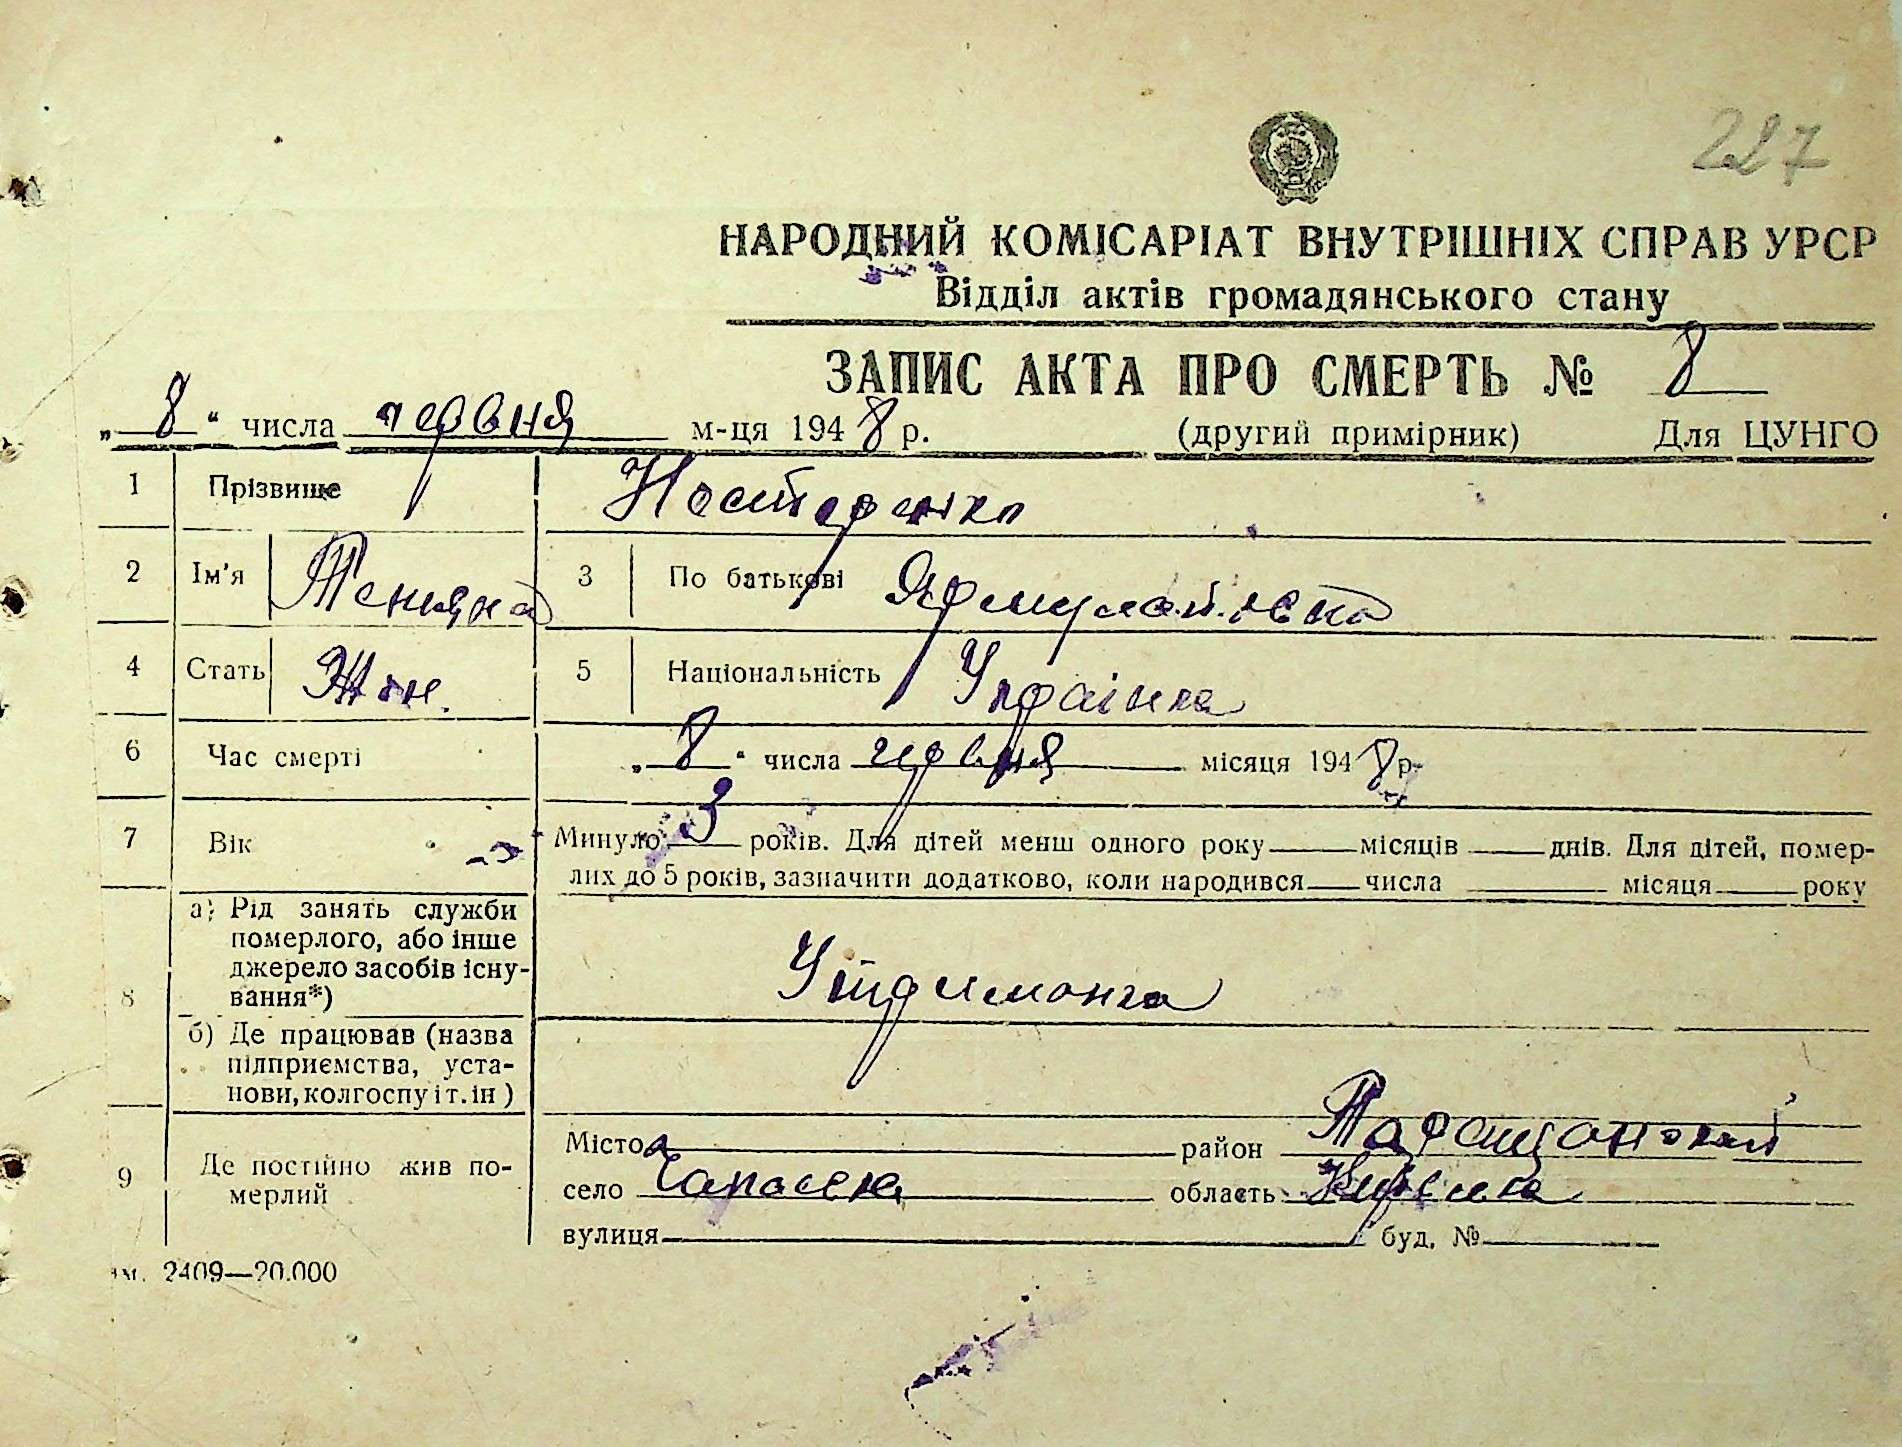 227
НАРОДНИЙ КОМІСАРІАТ ВНУТРІШНІХ СПРАВ УРСР
Відділ актів громадянського стану
ЗАПИС АКТА ПРО СМЕРТЬ № 8
„8“ числа червня м-ця 1948 р. (другий примірник) Для ЦУНГО
1 Прізвище Нестеренко
2 Ім'я Тетяна 3 По батькові
4 Стать Жін. 5 Національність Українка
6 Час смерті „8“ числа червня місяця 1948 р.
7 Вік Минуло 3 років. Для дітей менш одного року місяців днів. Для дітей, помер-
лих до 5 років, зазначити додатково, коли народився числа місяця року
8 а) Рід занять служби
померлого, або інше
джерело засобів існу-
вання*)
Утриманка
б) Де працював (назва
підприємства, уста-
нови, колгоспу і т. ін)
9 Де постійно жив по-
мерлий
Місто район
село область Київська
вулиця буд. №
2409—20.000